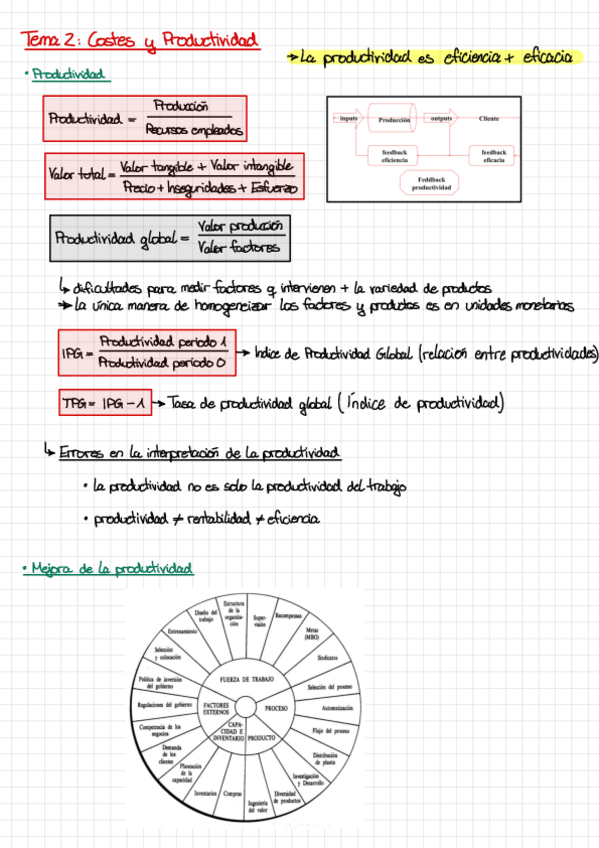 Tema 2: Costes y Productividad
→ La productividad es eficiencia + eficacia
• Productividad
Productividad = Producción / Recursos empleados
inputs Producción outputs Cliente
feedback eficiencia
feedback eficacia
Feddback productividad
Valor total = Valor tangible + Valor intangible / Precio + Inseguridades + Esfuerzo
Productividad global = Valor producción / Valor factores
↳ dificultades para medir factores q intervienen + la variedad de productos
→ la única manera de homogeneizar los factores y productos es en unidades monetarias
IPG = Productividad periodo 1 / Productividad periodo 0 → Indice de Productividad Global (relación entre productividades)
TPG = IPG - 1 → Tasa de productividad global (Índice de productividad)
↳ Errores en la interpretación de la productividad
• la productividad no es solo la productividad del trabajo
• productividad ≠ rentabilidad ≠ eficiencia
• Mejora de la productividad
Estructura de la organiza-ción
Super-visión
Recompensas
Metas (MBO)
Sindicatos
Selección del proceso
Automatización
Flujo del proceso
Distribución de planta
Investigación y Desarrollo
Diversidad de productos
Ingeniería del valor
Compras
Inventarios
Planeación de la capacidad
Demanda de los clientes
Competencia de los negocios
Regulaciones del gobierno
Política de inversión del gobierno
Selección y colocación
Entrenamiento
Diseño del trabajo
FUERZA DE TRABAJO
PROCESO
PRODUCTO
CAPA-CIDAD E INVENTARIO
FACTORES EXTERNOS